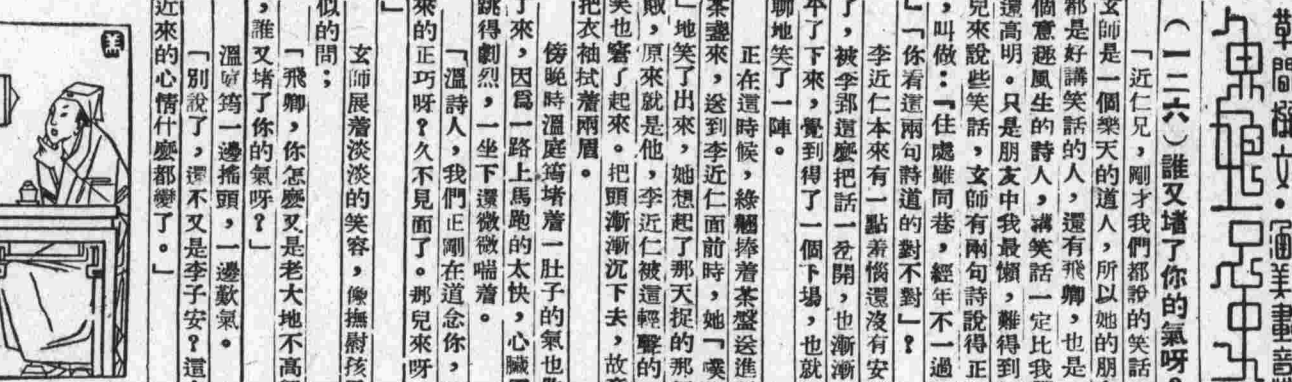 草間撰文·涵美畫意
(一二六)誰又堵了你的氣呀?
「近仁兄，剛才我們都說的笑話
玄師是一個樂天的道人，所以她的朋
都是好講笑話的人，還有飛卿，也是
個意趣風生的詩人，講笑話一定比我
還高明。只是朋友中我最懶，難得到
兒來說些笑話，玄師有兩句詩說得正
，叫做：『住處雖同巷，經年不一過
』「你看這兩句詩道的對不對」?
李近仁本來有一點羞惱還沒有安
了，被李郢這麼把話一岔開，也漸漸
平了下來，覺到得了一個下場，也就
聊地笑了一陣。
正在這時候，綠翹捧着茶盤送進
茶盞來，送到李近仁面前時，她「噗
」地笑了出來，她想起了那天捉的那
賊，原來就是他，李近仁被這輕聲的
笑也窘了起來。把頭漸漸沉下去，故
把衣袖拭着兩眉。
傍晚時溫庭筠堵着一肚子的氣也
了來，因爲一路上馬跑的太快，心臟
跳得劇烈，一坐下還微微喘着。
「溫詩人，我們正剛在道念你，
來的正巧呀?久不見面了。那兒來呀
」
玄師展着淡淡的笑容，像撫慰孩
似的問；
「飛卿，你怎麼又是老大地不高
，誰又堵了你的氣呀?」
溫庭筠一邊搖頭，一邊歎氣。
「別說了，還不又是李子安?這
近來的心情什麼都變了。」
美